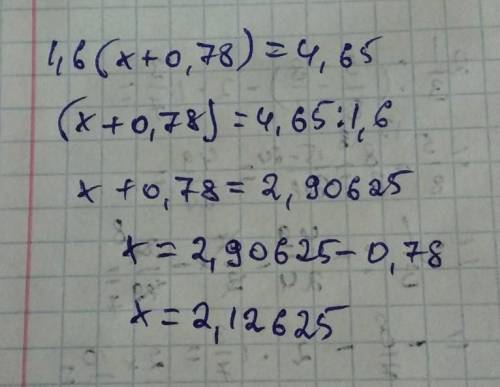 1,6(x+0,78)=4,65
(x+0,78)=4,65:1,6
x+0,78=2,90625
x=2,90625-0,78
x=2,12625